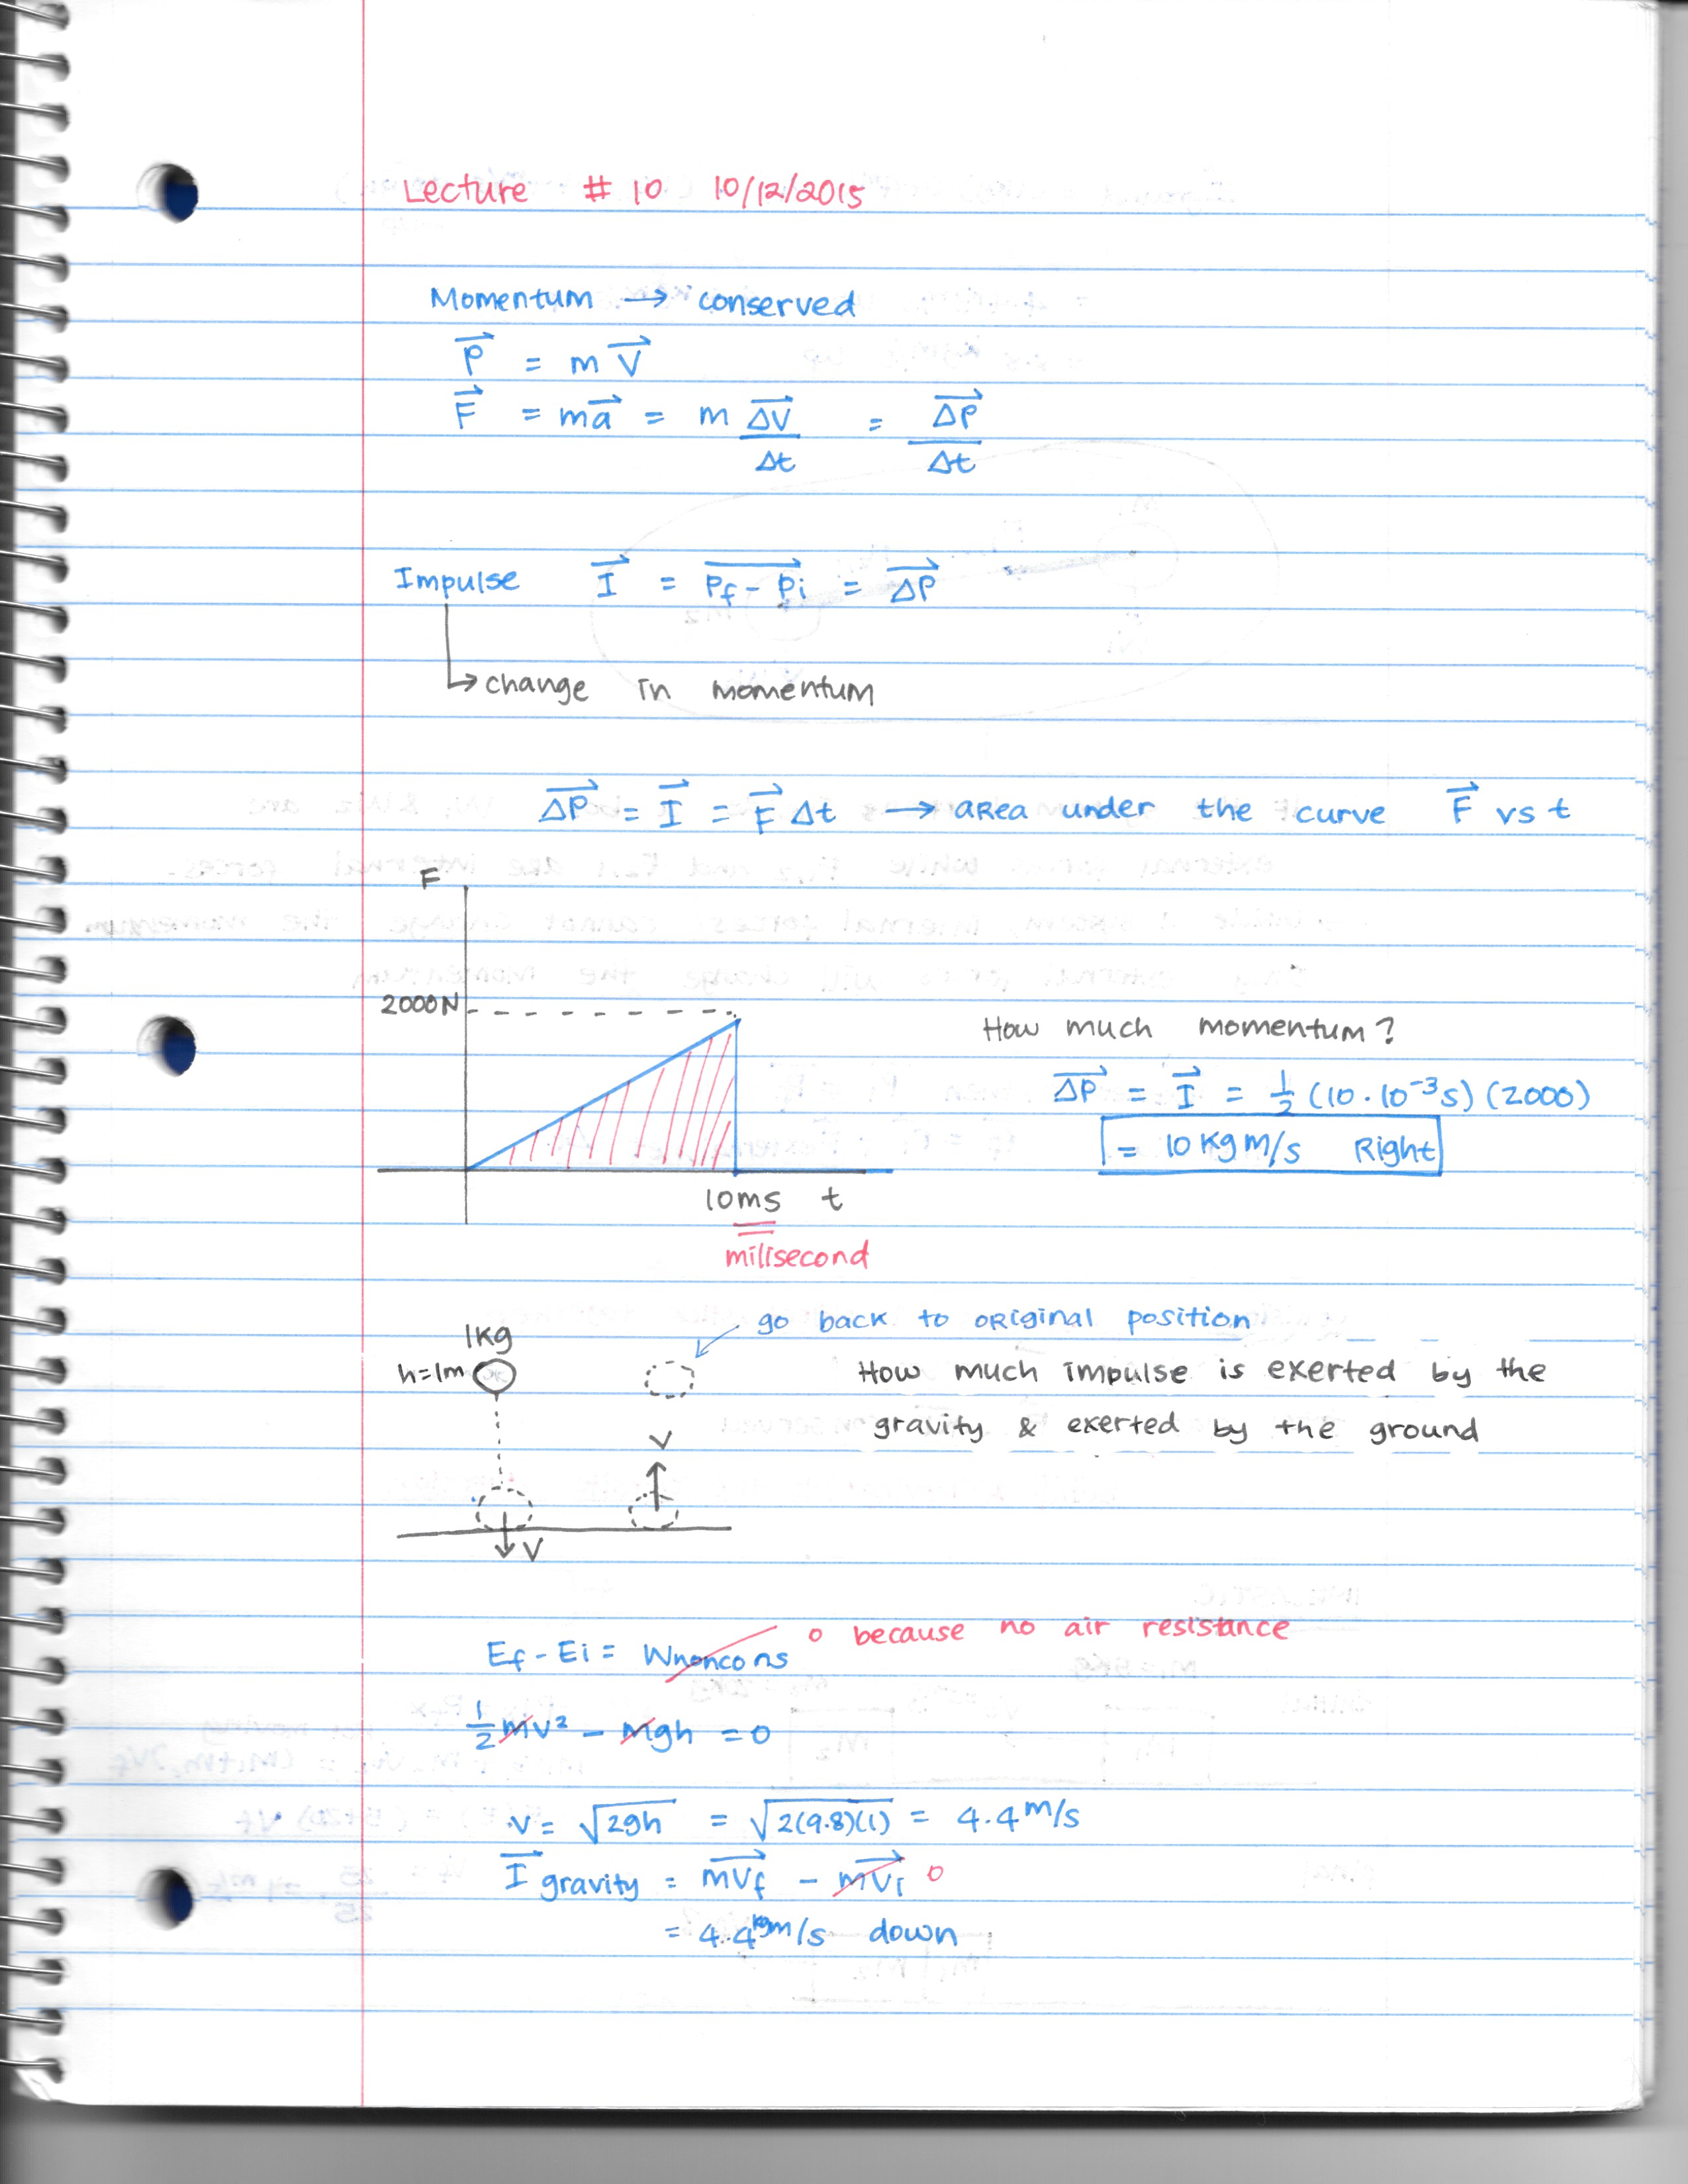 Lecture # 10 10/12/2015
Momentum → conserved
P⃗ = m V⃗
F⃗ = ma⃗ = m ΔV⃗/Δt = ΔP⃗/Δt
Impulse I⃗ = Pf - Pi = ΔP⃗
↳ change in momentum
ΔP⃗ = I⃗ = F⃗ Δt → area under the curve F⃗ vs t
F
2000N
How much momentum?
ΔP⃗ = I⃗ = 1/2 (10 · 10⁻³s) (2000)
= 10 kg m/s Right
10ms t
milisecond
go back to original position
1kg
h=1m
How much impulse is exerted by the
gravity & exerted by the ground
V
V
Ef - Ei = Wnoncons 0 because no air resistance
1/2 mv² - mgh = 0
v = √2gh = √2(9.8)(1) = 4.4 m/s
I⃗ gravity = mVf - mVi 0
= 4.4 kgm/s down